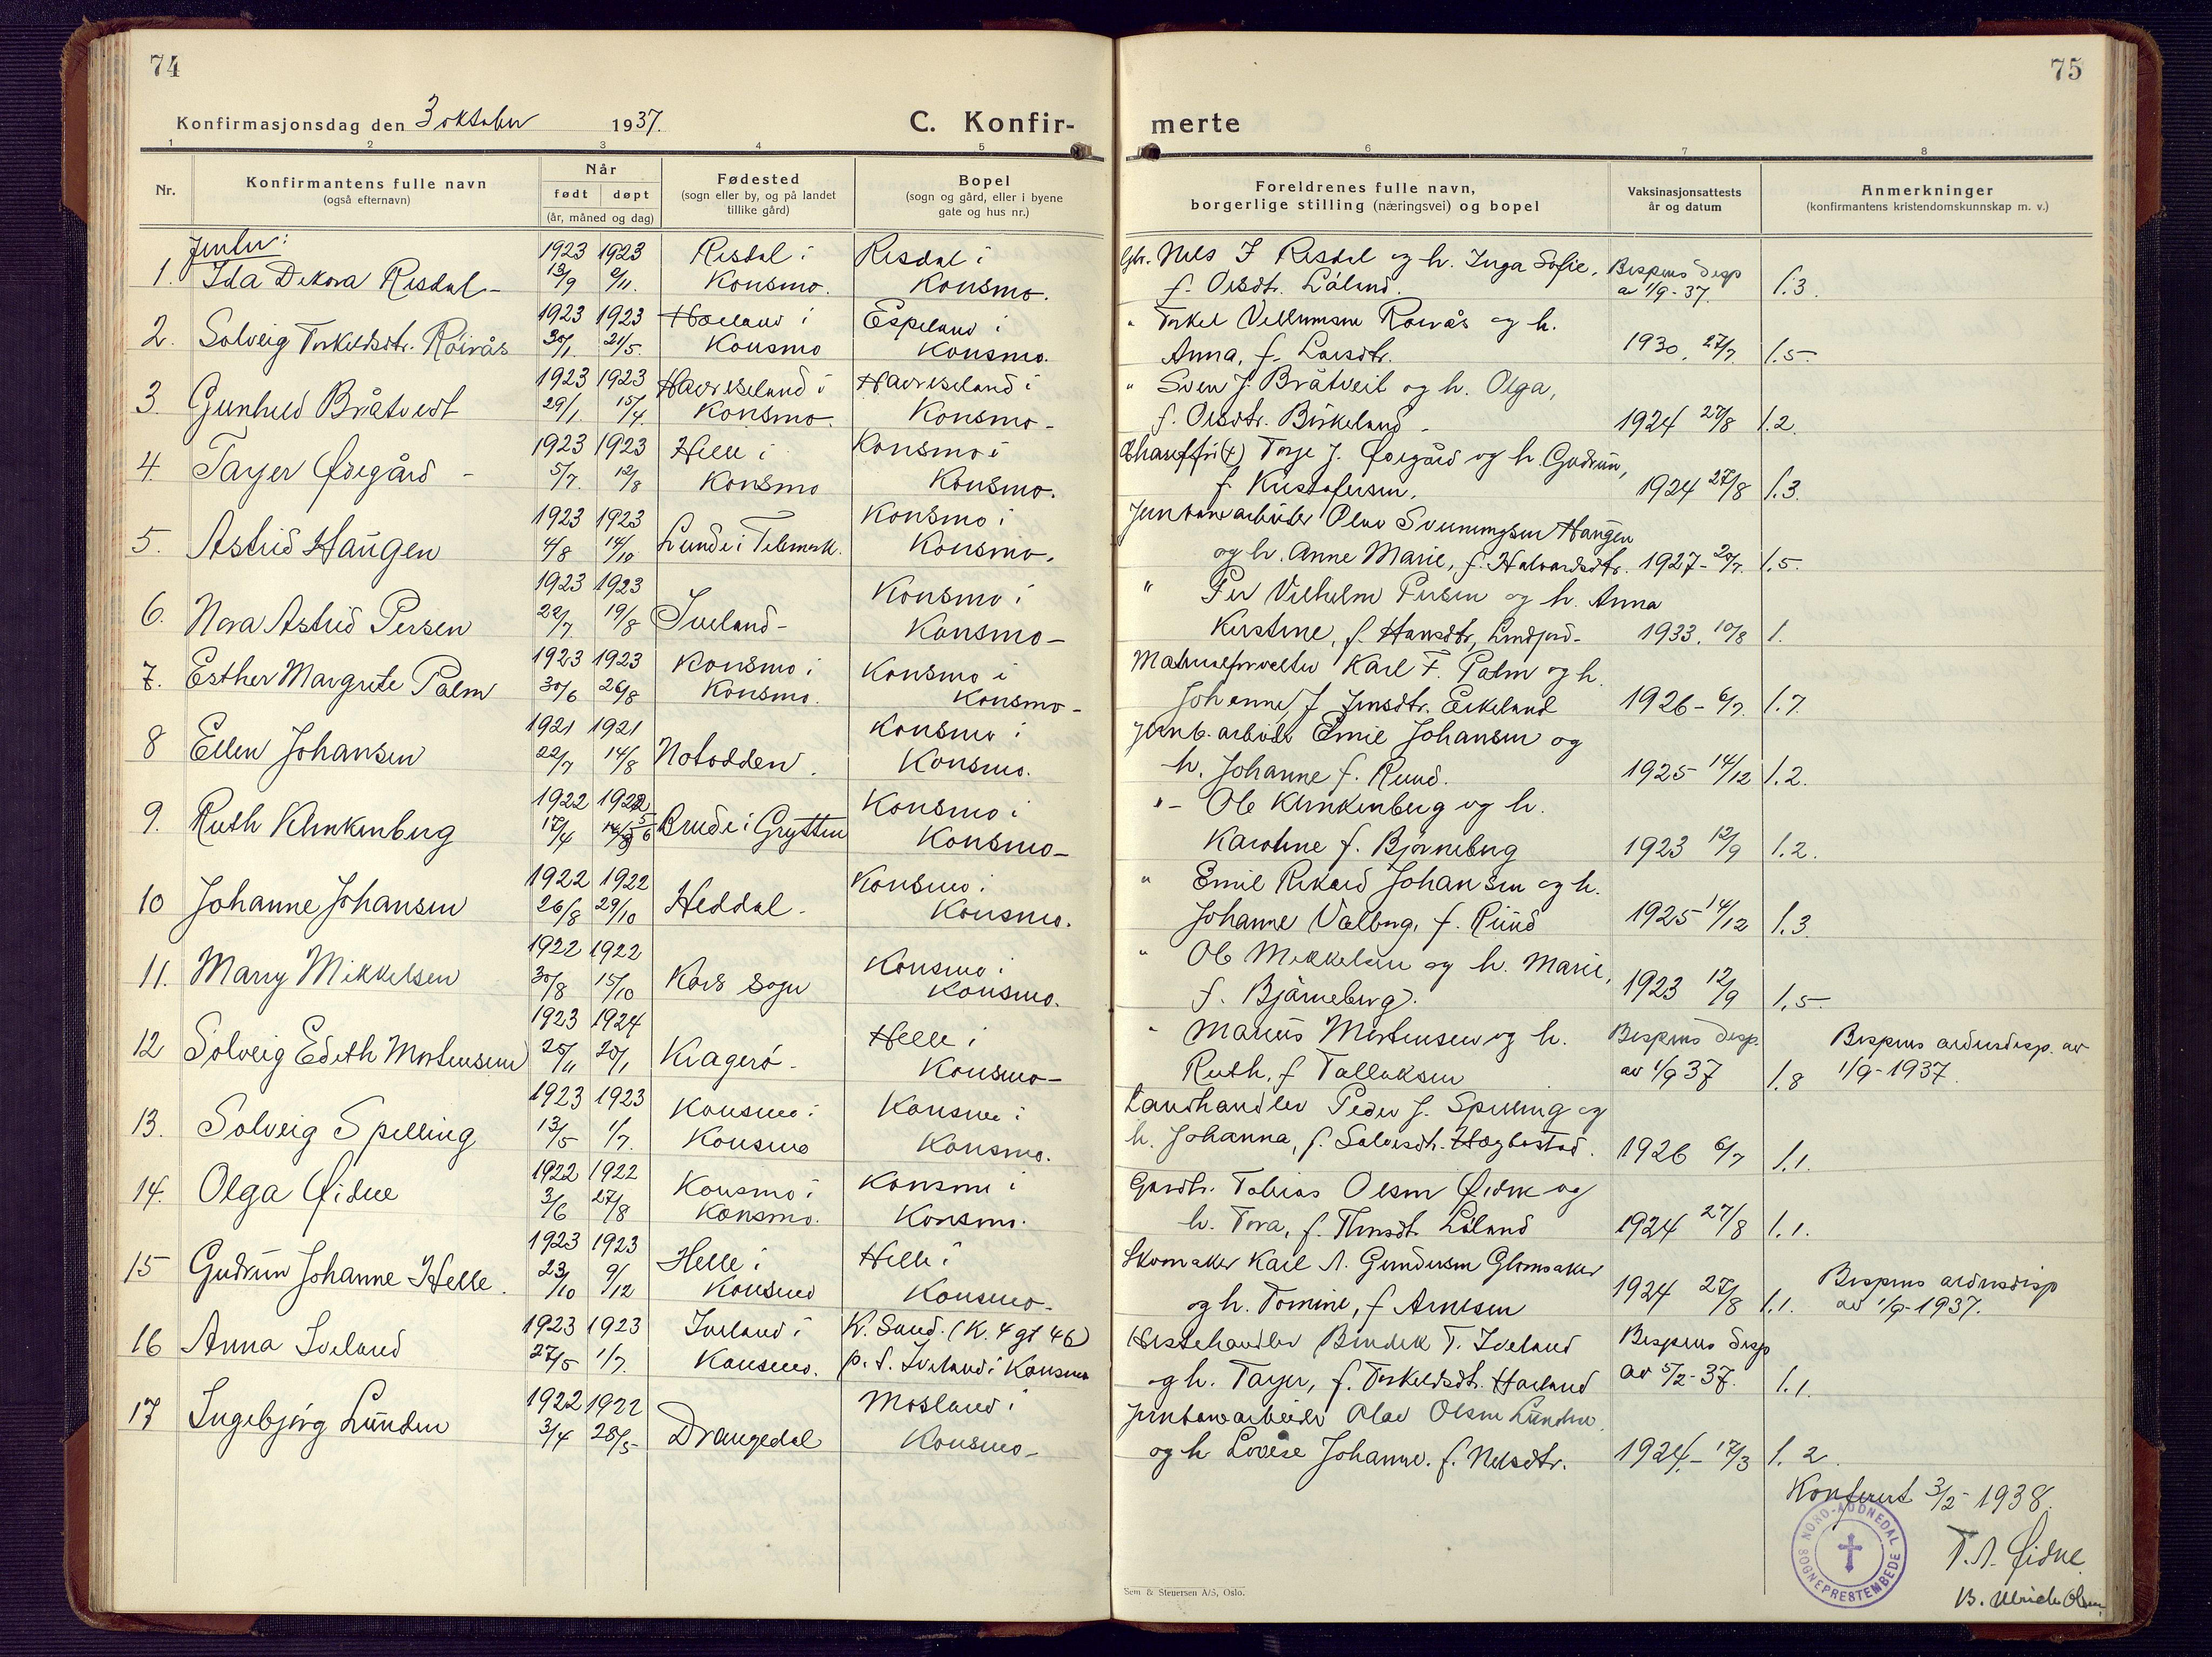 74
75
Konfirmasjonsdag den 3 oktober 1937.
C. Konfir-
merte
1 2 3 4 5
6 7 8
Nr.
Konfirmantens fulle navn
(også efternavn)
Når
født døpt
(år, måned og dag)
Fødested
(sogn eller by, og på landet
tillike gård)
Bopel
(sogn og gård, eller i byene
gate og hus nr.)
Foreldrenes fulle navn,
borgerlige stilling (næringsvei) og bopel
Vaksinasjonsattests
år og datum
Anmerkninger
(konfirmantens kristendomskunnskap m. v.)
Jenter:
1923 1923 Risdal i Risdal i Gbr. Nils J Risdal og h. Inga Sofie, Bispens disp
1. Ida Dekora Risdal - 13/9 Konsmo. Konsmo. f. Olsdtr. Låland. av 1/9-37. 1.3.
1923 1923 Hæland i Espeland i " Torkel Villumsen Röivås og h.
2. Solveig Torkeldsdtr. Röivås 30/1. 21/5. Konsmo Konsmo. Anna, f. Larsdtr. 1930. 27/7 1.5.
1923 1923 Haureseland i Haureseland i " Sven J. Bråtveit og h. Olga,
3. Gunhild Bråtveit 29/1. 15/4. Konsmo. Konsmo - f. Olsdtr. Birkeland - 1924 27/8 1.2.
1923 1923 Helle i Konsmo i Chauffør (+) Torje J. Ødegård og h. Gudrun,
4. Tarjer Ødegård - 5/7. 12/8 Konsmo Konsmo. f. Kristofersen. 1924 27/8 1.3.
1923 1923 Konsmo i Jernbanearbeider Olav Sveinungsen Haugen
5. Astrid Haugen 4/8 14/10 Lunde i Telemark. Konsmo. og h. Anne Marie, f. Halvardsdtr. 1927 - 20/7. 1.5.
1923 1923 Konsmo i " Per Vilhelm Persen og h. Anna
6. Nora Astrid Persen 22/7 19/8 Iveland - Konsmo - Kristine, f. Hansdtr, Lindjord - 1933. 10/8 1.
1923 1923 Konsmo i Konsmo i Materialforvalter Karl F. Palm og h.
7. Esther Margrete Palm 30/6 26/8 Konsmo. Konsmo - Johanne f Jensdtr. Eikeland 1926 - 6/7. 1.7.
1921 1921 Konsmo i Jernb. arbeider Emil Johansen og
8 Ellen Johansen 22/7 14/8 Notodden. Konsmo. h. Johanne f. Ruud. 1925 14/12 1.2.
1922 1922 Konsmo i " - Ole Klinkenberg og h.
9. Ruth Klinkenberg 17/4 5/6 Brude i Grytten Konsmo - Karoline f. Bjørneberg 1923 12/9 1.2.
1922 1922 Konsmo i " Emil Rikard Johansen og h.
10 Johanne Johansen 26/8 29/10 Heddal. Konsmo. Johanne Valborg, f. Ruud 1925 14/12 1.3.
1922 1922 Konsmo i " Ole Mikkelsen og h. Marie,
11. Marry Mikkelsen 30/8 15/10 Kors sogn Konsmo. f. Bjärneberg. 1923 12/9 1.5 -
1923 1924 Helle i " Marius Mortensen og h. Bispens disp. Bispens aldersdisp. av
12 Solveig Edith Mortensen 25/11 20/1 Kragerö - Konsmo - Ruth, f Tallaksen av 1/9 37 1.8 1/9-1937.
1923 1923 Konsmo i Konsmo i Landhandler Peder J. Spilling og
13. Solveig Spilling 13/5 1/7. Konsmo Konsmo. h. Johanna, f. Salvesdtr. Hægbostad. 1926 6/7 1.1.
1922 1922 Konsmo i Konsmo i Gardbr. Tobias Olsen Øidne og
14. Olga Øidne 3/6 27/8 Konsmo. Konsmo. h. Tora, f. Låland 1924 27/8 1.1.
1923 1923 Helle i Helle i Skomaker Karl A. Gundersen Glomsaker Bispens aldersdisp
15 Gudrun Johanne Helle. 23/10 9/12 Konsmo Konsmo - og h. Tomine, f Arnesen 1924 27/8 1.1. av 1/9-1937.
1923 1923 Iveland i K. Sand. (K. 4 gt 46) Hestehandler Bendik T. Iveland Bispens disp
16 Anna Iveland 27/5 1/7. Konsmo. p. t. Iveland i Konsmo og h. Tarjer, f. Torkeldsdtr. Hæland av 5/2-37. 1.1.
1922 1922 Mosland i Jernbanearbeider Olav Olsen Lunden.
17 Ingebjørg Lunden 3/4 28/5 - Drangedal Konsmo - og h Lovise Johanne. f. Nilsdtr. 1924. - 17/3 1. 2.
Konferert 3/2 - 1938.
NORD-AUDNEDAL
SOGNEPRESTEMBEDE
T. A. Øidne
B. Ulrichs Olsen.
Sem & Stenersen A/S, Oslo.